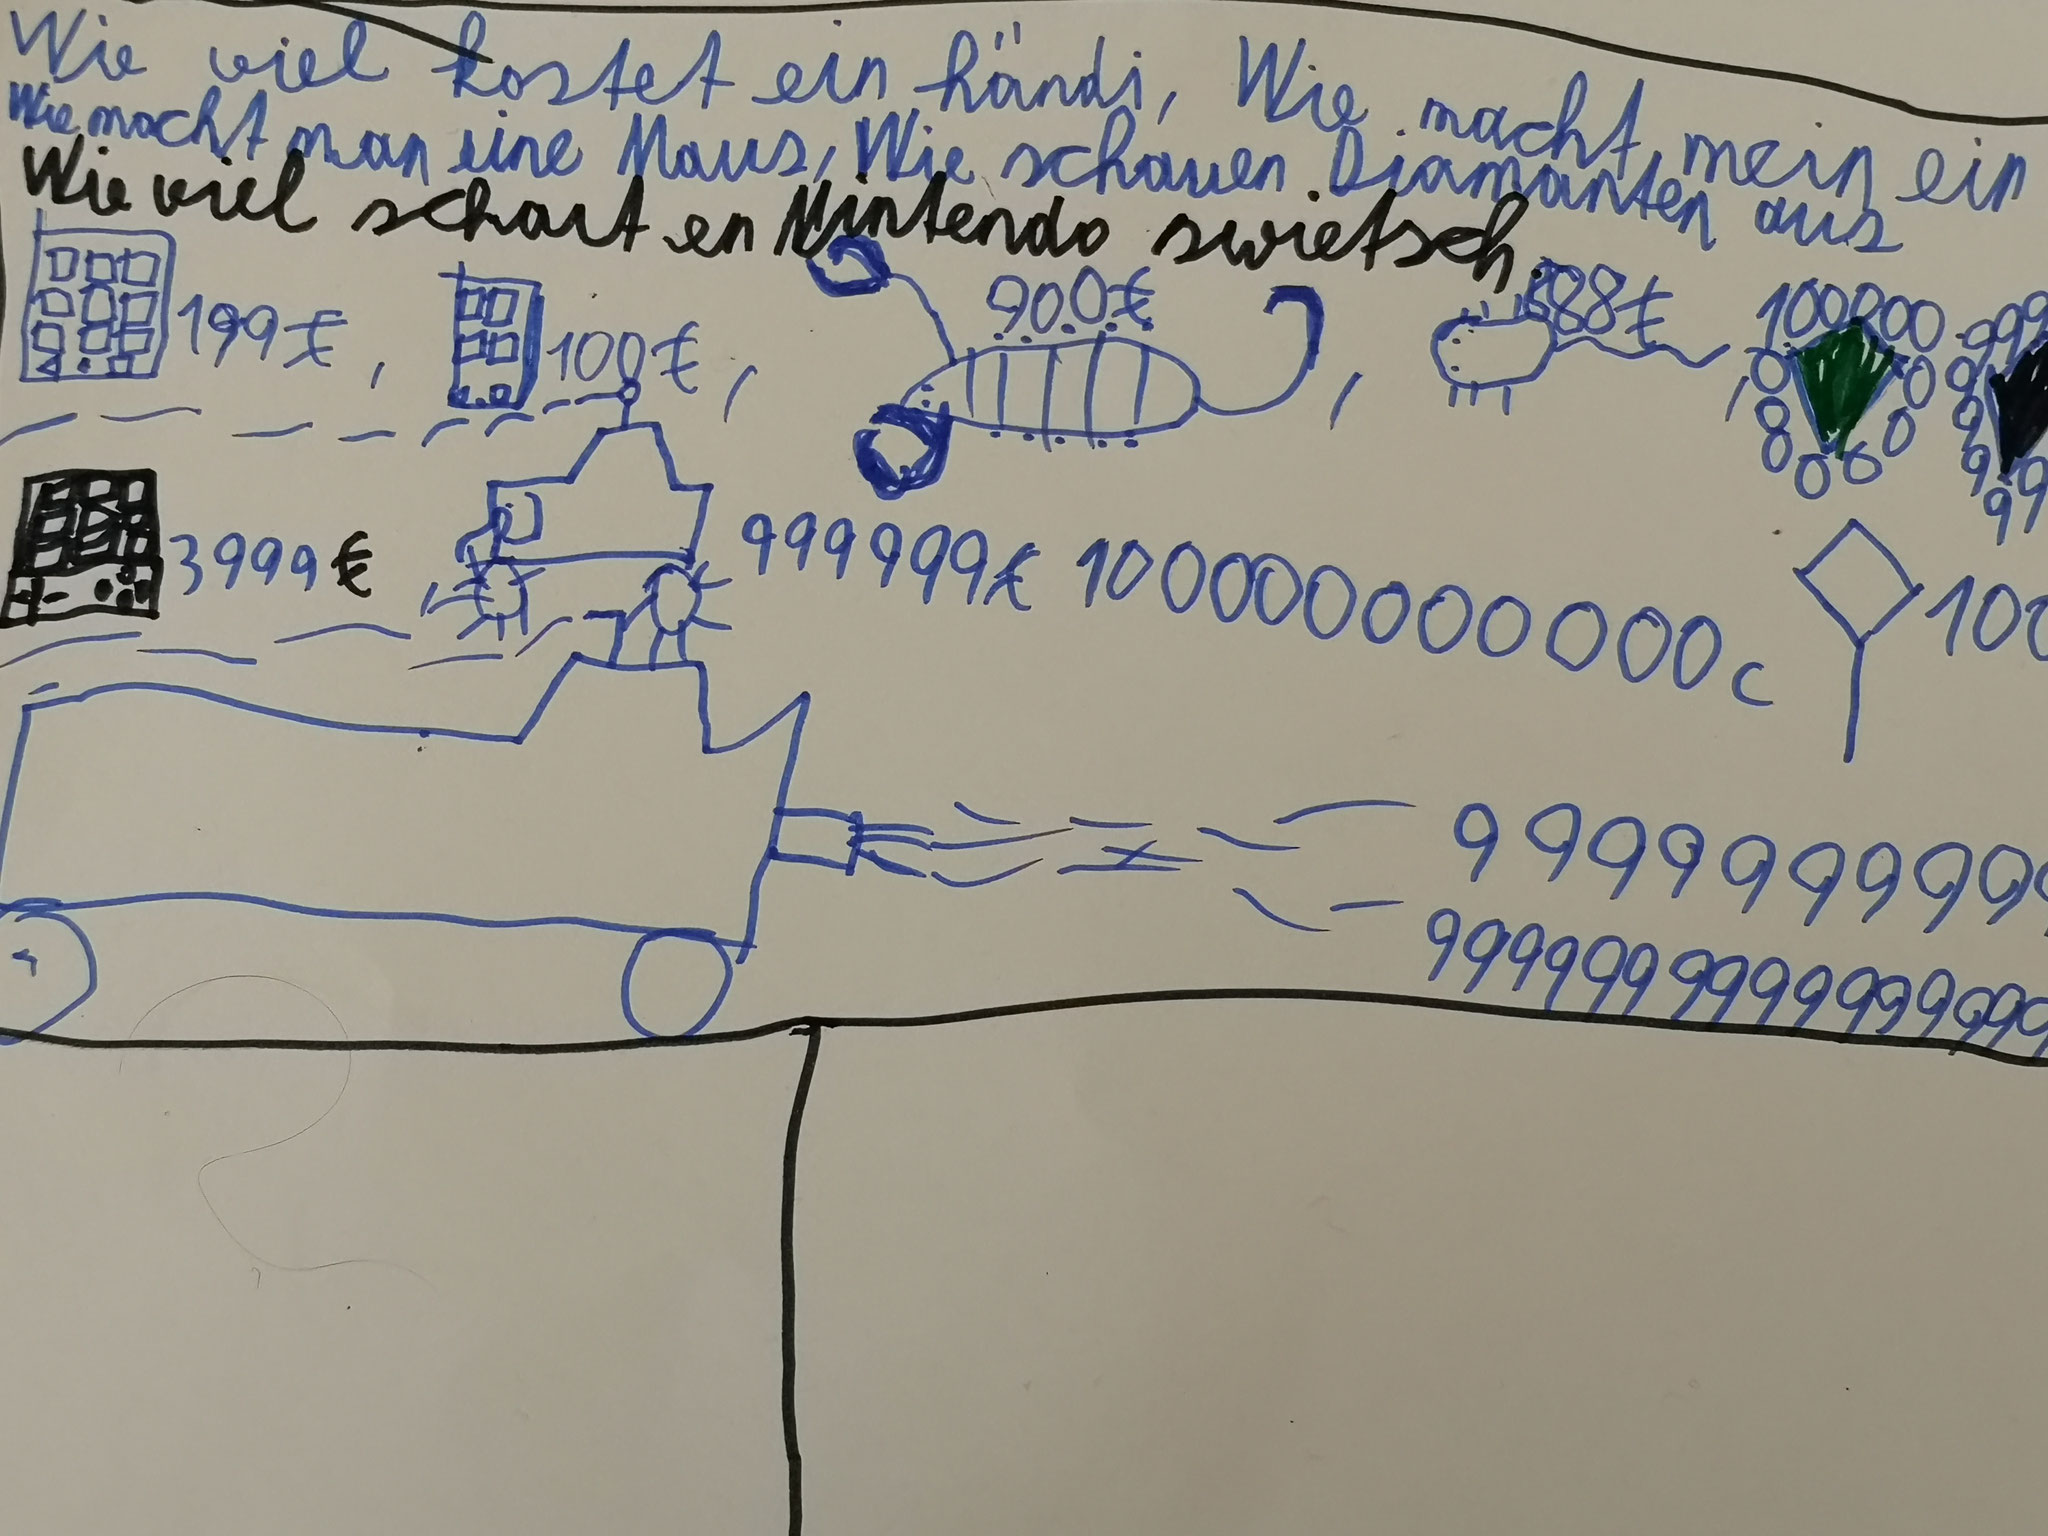 Wie viel kostet ein händi, Wie macht mein ein
Wie macht man eine Maus, Wie schauen Diamanten aus
Wie viel schaut en Nintendo swietsch.
199€, 100€, 900€, 888€ 100000
3999€ 999999€ 10000000000000c 100
999999999